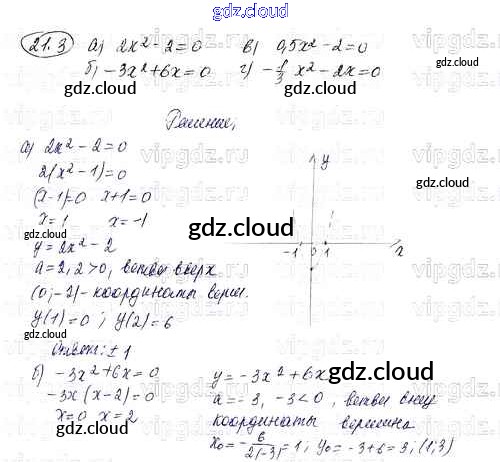 gdz.cloud
21.3 а) 2x² - 2 = 0 в) 0,5x² - 2 = 0
б) -3x² + 6x = 0 г) -1/3 x² - 2x = 0
gdz.cloud gdz.cloud
Решение,
а) 2x² - 2 = 0
2(x² - 1) = 0
(x-1)=0 x+1=0
x=1 x=-1
y = 2x² - 2
a=2, 2>0, ветви вверх
(0;-2) - координаты верш.
y(1)=0; y(2)=6
Ответ: ±1
y
-1 0 1 x
gdz.cloud
gdz.cloud
gdz.cloud
gdz.cloud
б) -3x² + 6x = 0
-3x(x-2)=0
x=0 x=2
y = -3x² + 6x
a=-3, -3<0, ветви вниз
координаты вершина
x₀ = -6/2(-3) = 1; y₀ = -3+6=3; (1;3)
gdz.cloud
gdz.cloud
vipgdz.ru